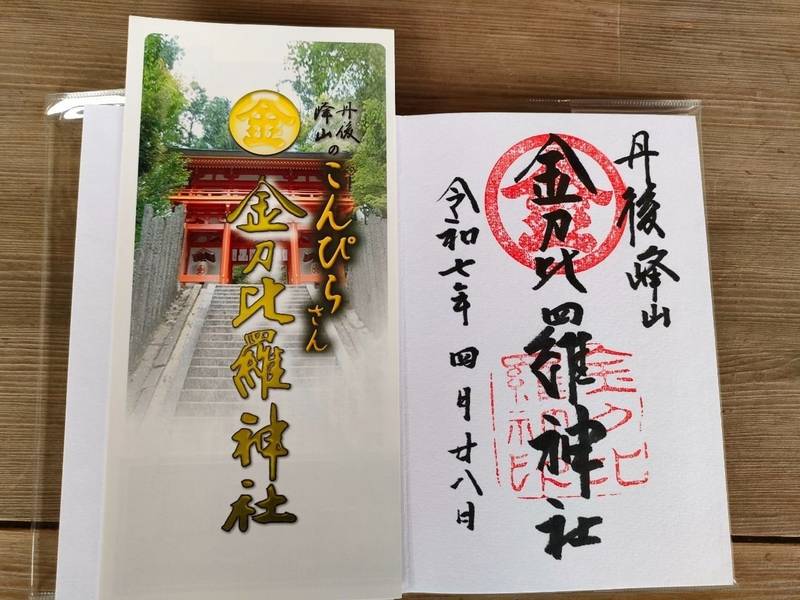 金
丹後
峰山の
こんぴらさん
金刀比羅神社
丹後峰山
金刀比羅神社
令和七年 四月廿八日